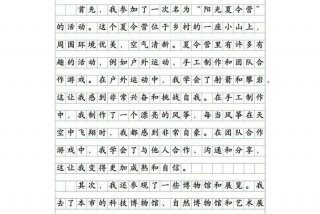 首先，我参加了一次名为“阳光夏令营”
的活动。这个夏令营位于乡村的一座小山上，
周围环境优美，空气清新。夏令营里有许多有
趣的活动，例如户外运动、手工制作和团队合
作游戏。在户外运动中，我学会了射箭和攀岩，
这让我感到非常兴奋和挑战自我。在手工制作
中，我制作了一个漂亮的风筝，每当风筝在天
空中飞翔时，我都感到非常自豪。在团队合作
游戏中，我学会了与他人合作、沟通和分享，
这让我变得更加成熟和自信。
其次，我还参观了一些博物馆和展览。我
去了本市的科技博物馆、自然博物馆和艺术博